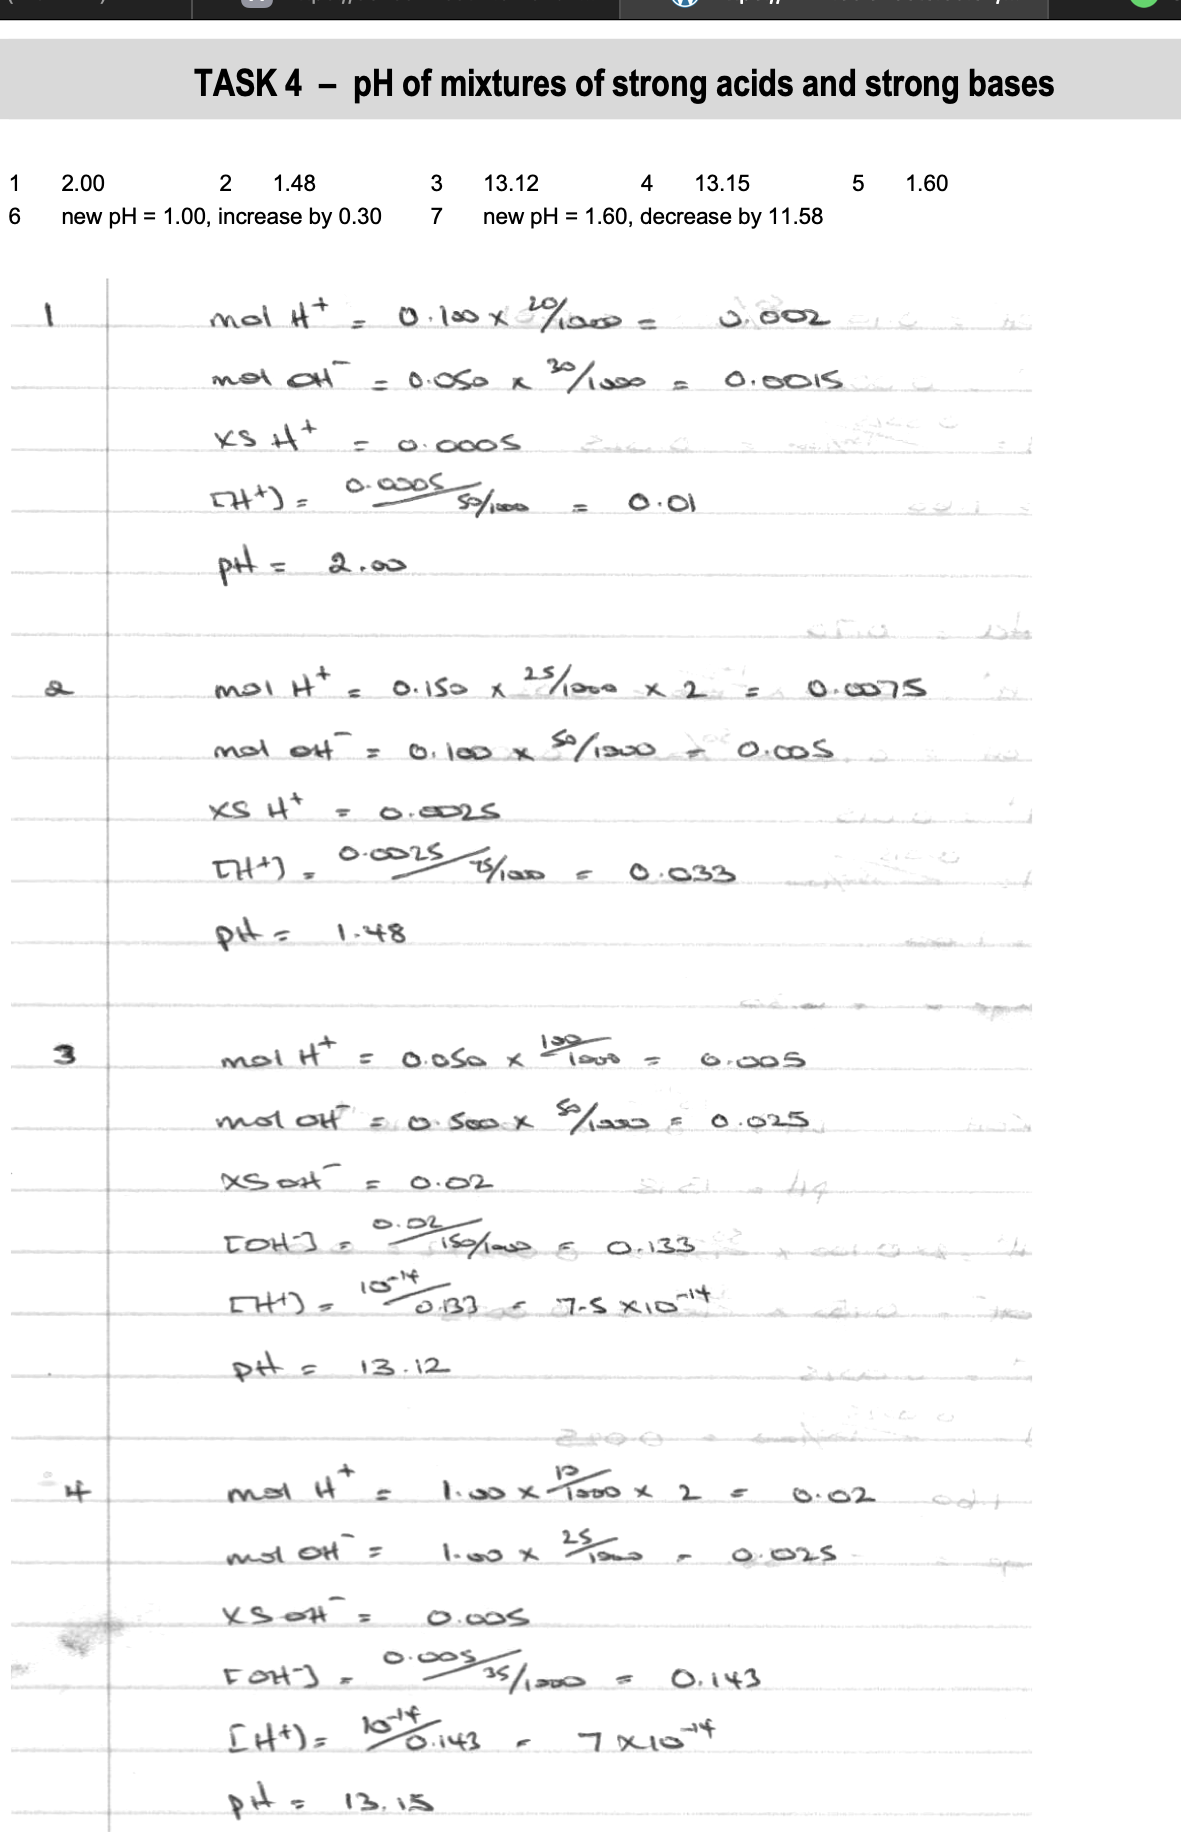 TASK 4 – pH of mixtures of strong acids and strong bases
1 2.00 2 1.48 3 13.12 4 13.15 5 1.60
6 new pH = 1.00, increase by 0.30 7 new pH = 1.60, decrease by 11.58
1 mol H⁺ = 0.100 x 20/1000 = 0.002
mol OH⁻ = 0.050 x 30/1000 = 0.0015
XS H⁺ = 0.0005
[H⁺] = 0.0005/50/1000 = 0.01
pH = 2.00
2 mol H⁺ = 0.150 x 25/1000 x 2 = 0.0075
mol OH⁻ = 0.100 x 50/1000 = 0.005
XS H⁺ = 0.0025
[H⁺] = 0.0025/75/1000 = 0.033
pH = 1.48
3 mol H⁺ = 0.050 x 100/1000 = 0.005
mol OH⁻ = 0.500 x 50/1000 = 0.025
XS OH⁻ = 0.02
[OH⁻] = 0.02/150/1000 = 0.133
[H⁺] = 10⁻¹⁴/0.133 = 7.5 x 10⁻¹⁴
pH = 13.12
4 mol H⁺ = 1.00 x 10/1000 x 2 = 0.02
mol OH⁻ = 1.00 x 25/1000 = 0.025
XS OH⁻ = 0.005
[OH⁻] = 0.005/35/1000 = 0.143
[H⁺] = 10⁻¹⁴/0.143 = 7 x 10⁻¹⁴
pH = 13.15